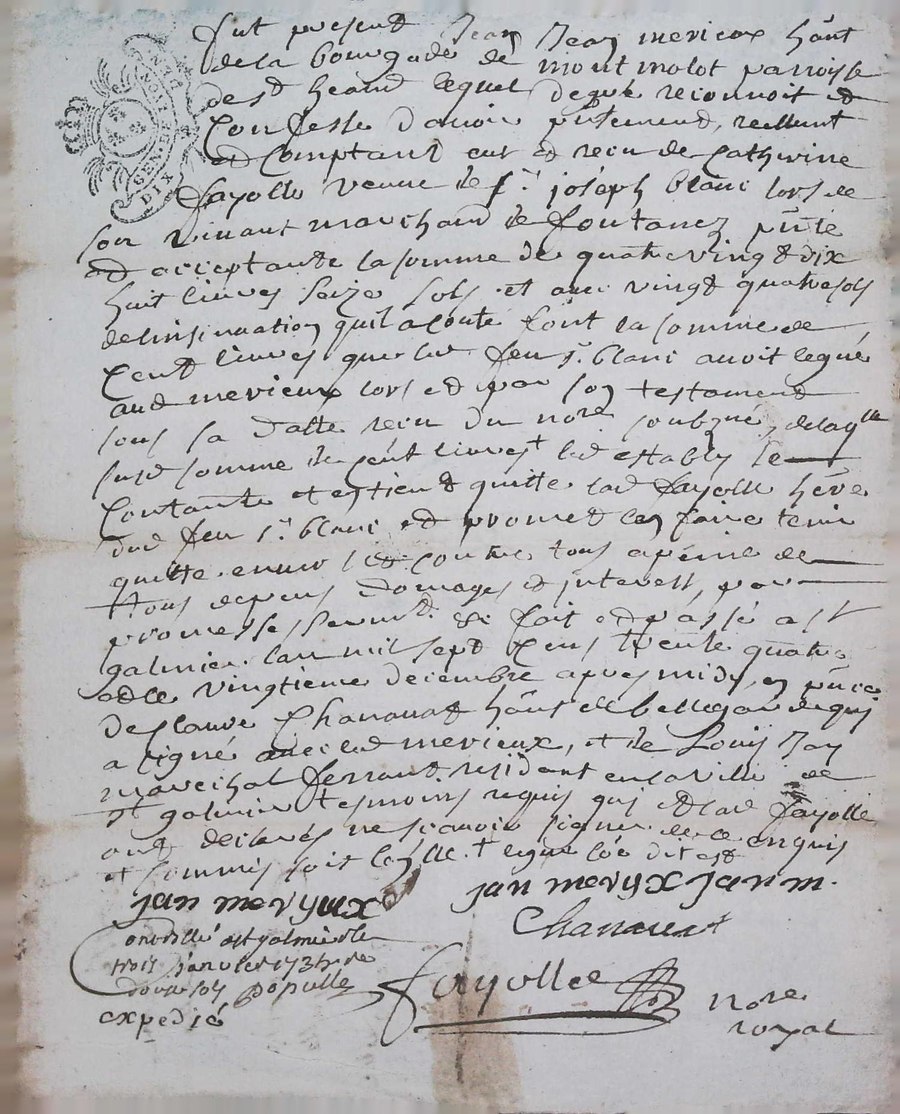 GEN. DE LION
DIX DEN
fut present Jean Jean merieux hãnt
de la bourgade de montmolot parroisse
de st heand lequel de gré reconnoit et
confesse d'avoir pñtement, reellemt
et comptant eut et receu de Catherine
fayolle veuve de sr. joseph blanc lors de
son vivant marchand de fontanez pñte
et acceptante la somme de quatrevingt dix
huit livres seize sols et avec vingt quatre sols
de linsinuation quil a couté font la somme de
Cent livres que led feu sr. blanc avoit legué
aud merieux lors et par son testament
sous sa datte receu du nore soubzné, de laqlle
susd somme de cent livres † led estably se
contante et en tient quitte lad fayolle here
dud feu sr. blanc et promet len faire tenir
quitte envers et contre tous a peine de
tous depens domages et interest, par
promesse sermt. &c fait et passé a st
galmier lan mil sept cens trente quatre
et le vingtieme decembre apres midy, en pñce
de Claude Chanavat hãnt de bellegarde qui
a signé avec led merieux, et de Louis Jay
marechal ferrant residant en la ville de
st galmier tesmoins requis qui et lad fayolle
ont declarés ne scavoir signer de ce enquis
et sommis soit
jan meryux
jan meryx jan m.
Chanavat
a st galmier le
trois janvier 173
douze sols
expedié
fayolle
nore
royal